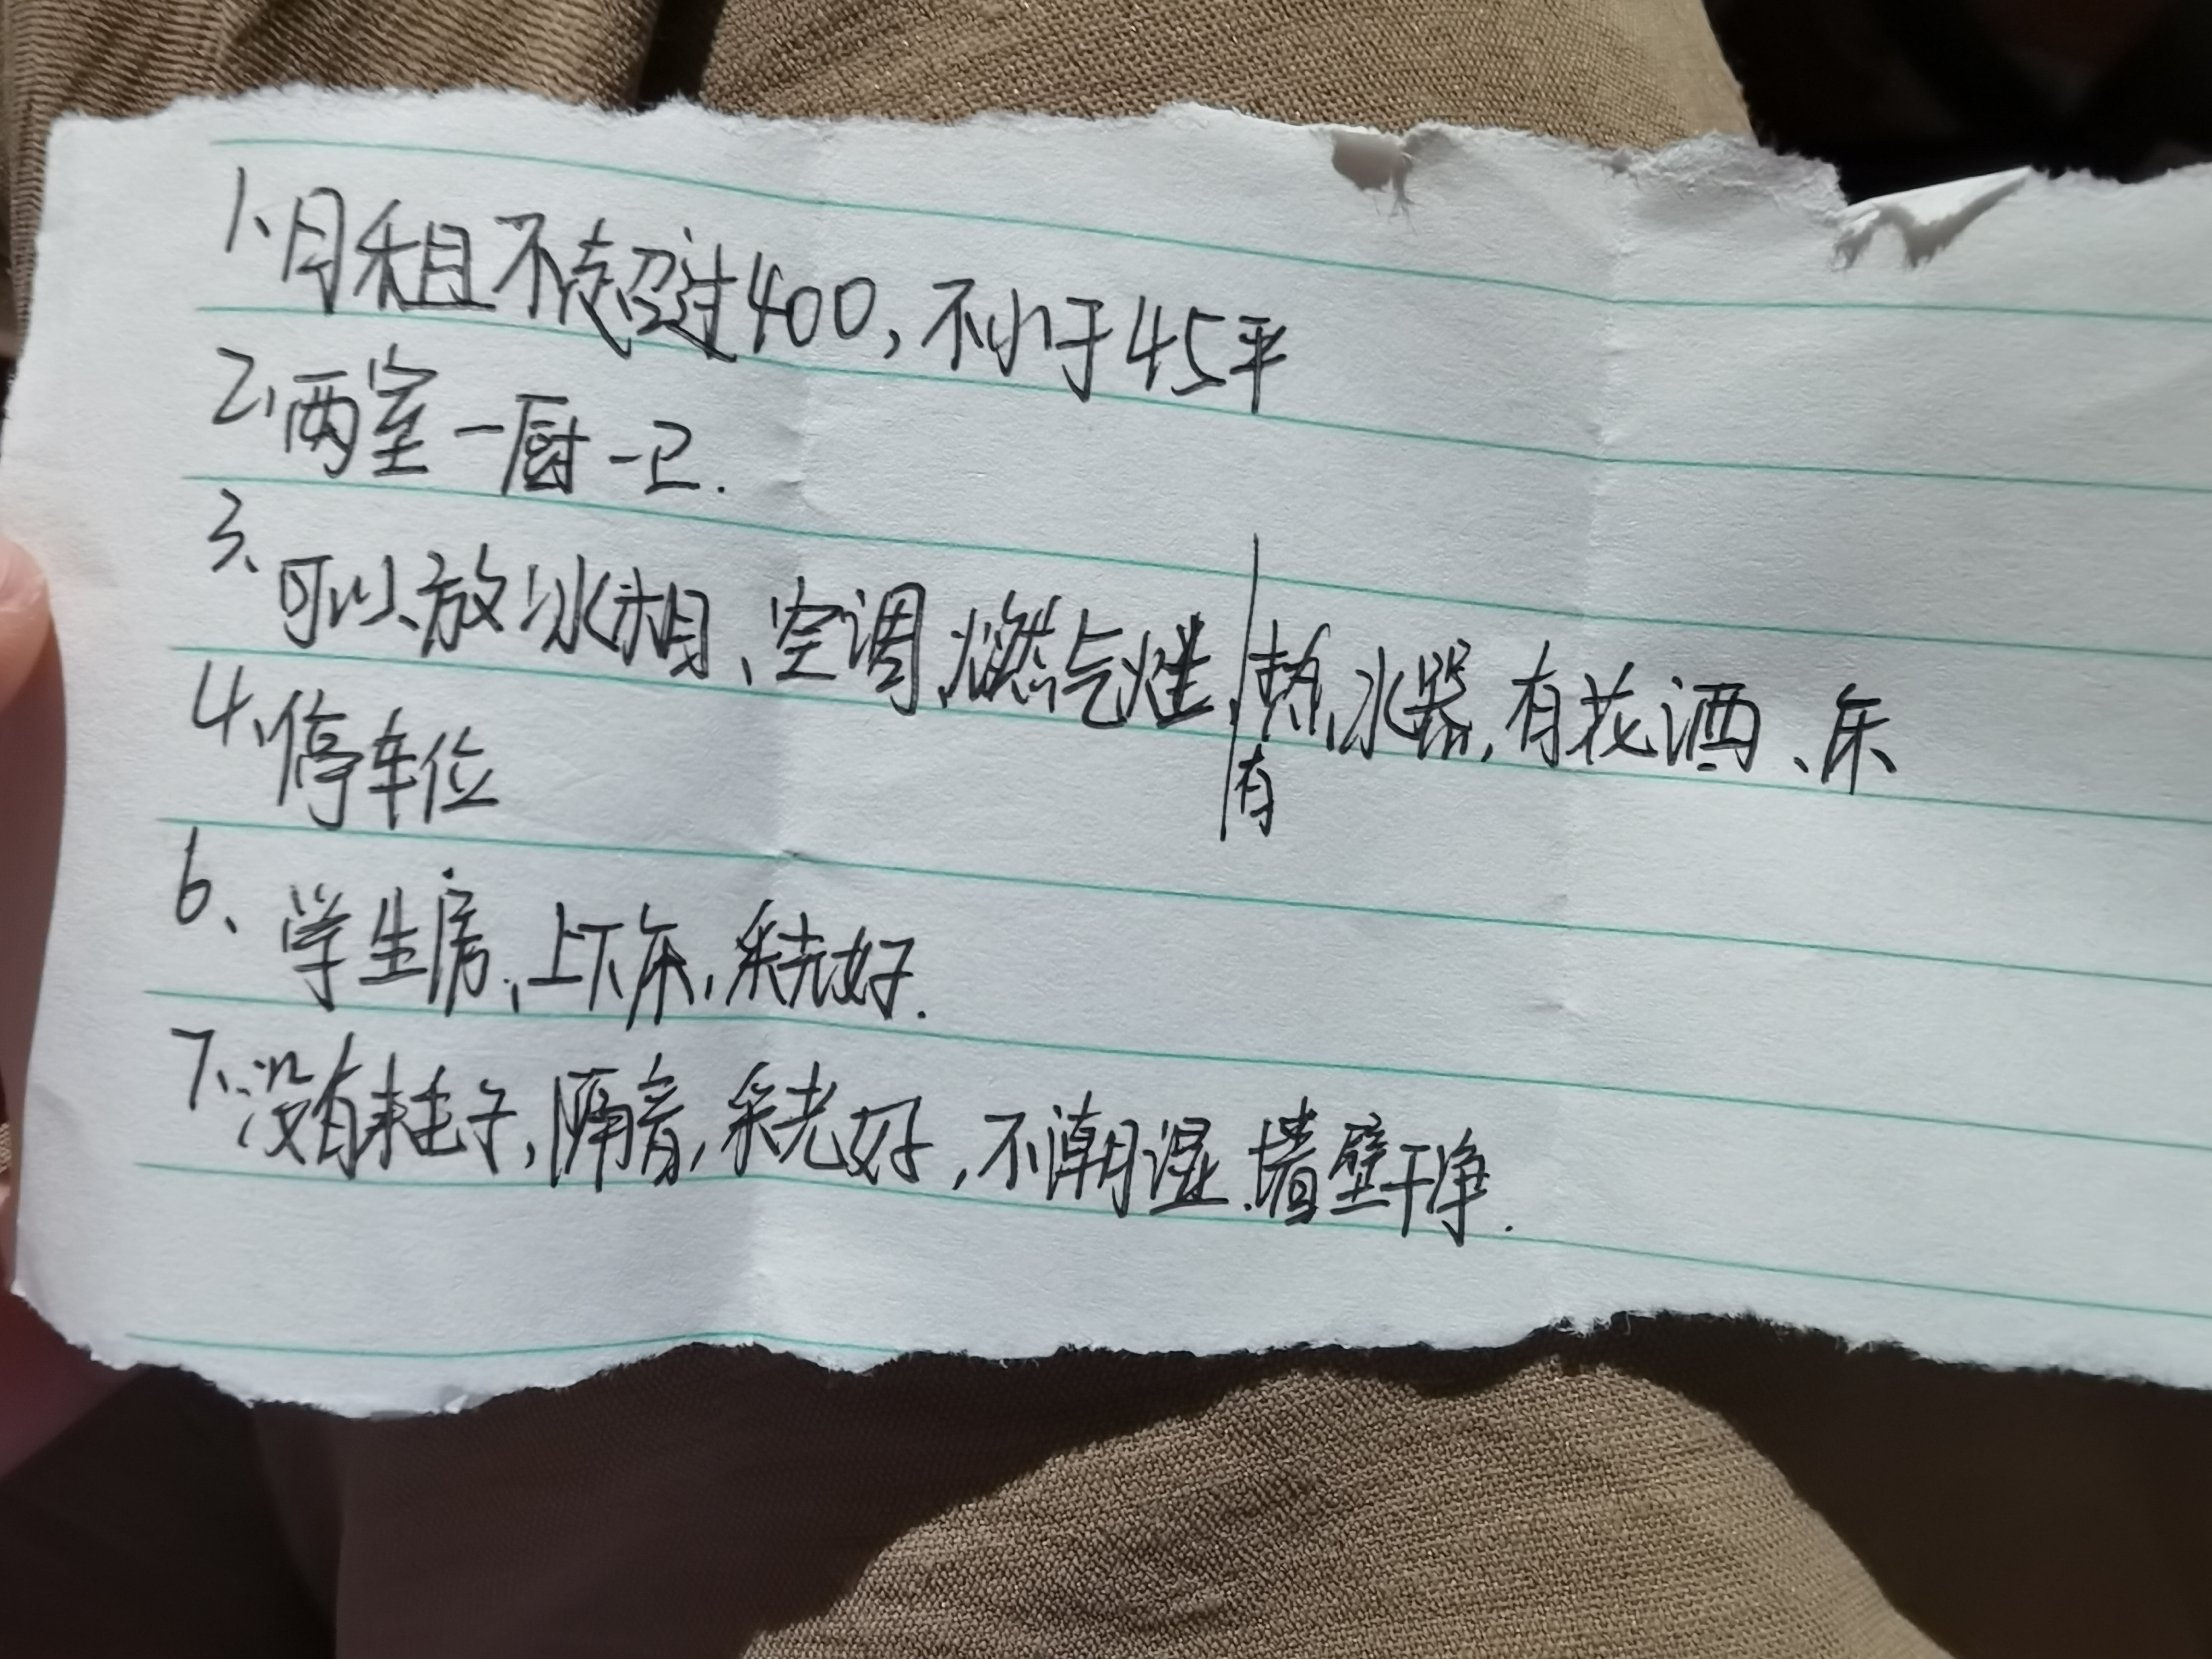 1、月租不超过400,不小于45平
2、两室一厨一卫.
3、可以放冰箱、空调、燃气灶、热水器,有花洒、床
有
4、停车位
6、学生房、上下床,采光好.
7、没有耗子,隔音,采光好,不潮湿、墙壁干净.